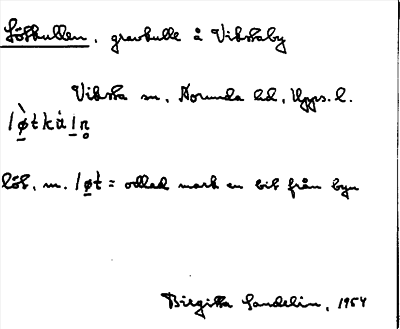 Lötkullen, gravkulle å Viksta by
Viksta sn, Norunda hd, Upps. l.
løtkùln
löt, m. løt = odlad mark en bit från byn
Birgitta Sandelin, 1954